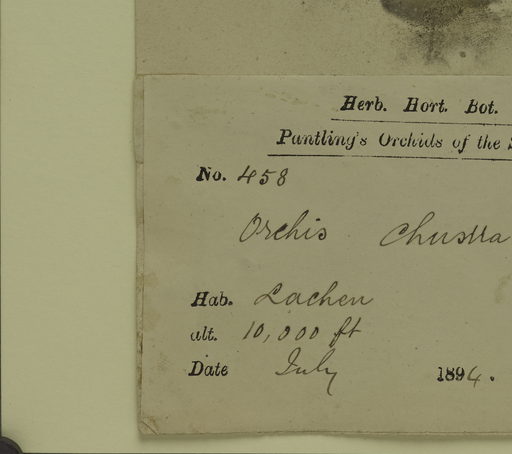 Herb. Hort. Bot.
Pantling's Orchids of the
No. 458
Orchis chusua
Hab. Lachen
alt. 10,000 ft
Date July 1894.